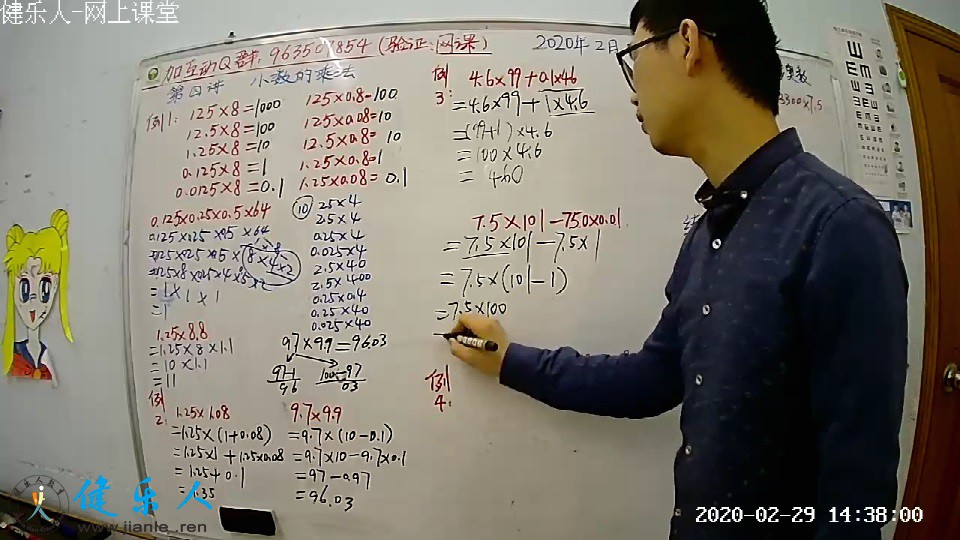 健乐人-网上课堂
第四讲 小数的乘法
2020年2月
例1: 125×8=1000
12.5×8=100
1.25×8=10
0.125×8=1
0.0125×8=0.1
125×0.8=100
125×0.08=10
12.5×0.8=10
1.25×0.8=1
1.25×0.08=0.1
0.125×0.25×0.5×64
=1
⑩ 25×4
2.5×4
0.25×4
0.025×4
2.5×40
2.5×400
0.25×0.4
0.25×40
0.025×40
1.25×8.8
=1.25×8×1.1
=10×1.1
=11
97×99=9603
例2: 1.25×1.08
=1.25×(1+0.08)
=1.25×1+1.25×0.08
=1.25+0.1
=1.35
9.7×9.9
=9.7×(10-0.1)
=9.7×10-9.7×0.1
=97-0.97
=96.03
例3: 4.6×99+0.1×46
=4.6×99+1×4.6
=(99+1)×4.6
=100×4.6
=460
7.5×101-750×0.01
=7.5×101-7.5×1
=7.5×(101-1)
=7.5×100
例4:
健乐人
www.jianle_ren
2020-02-29 14:38:00